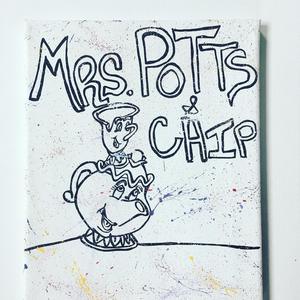 MRS. POTTS
&
CHIP